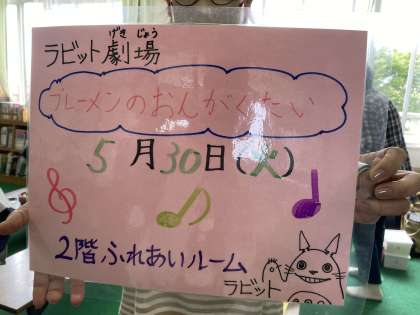 げき じょう
ラビット劇場
ブレーメンのおんがくたい
5月30日(火)
2階ふれあいルーム
ラビット